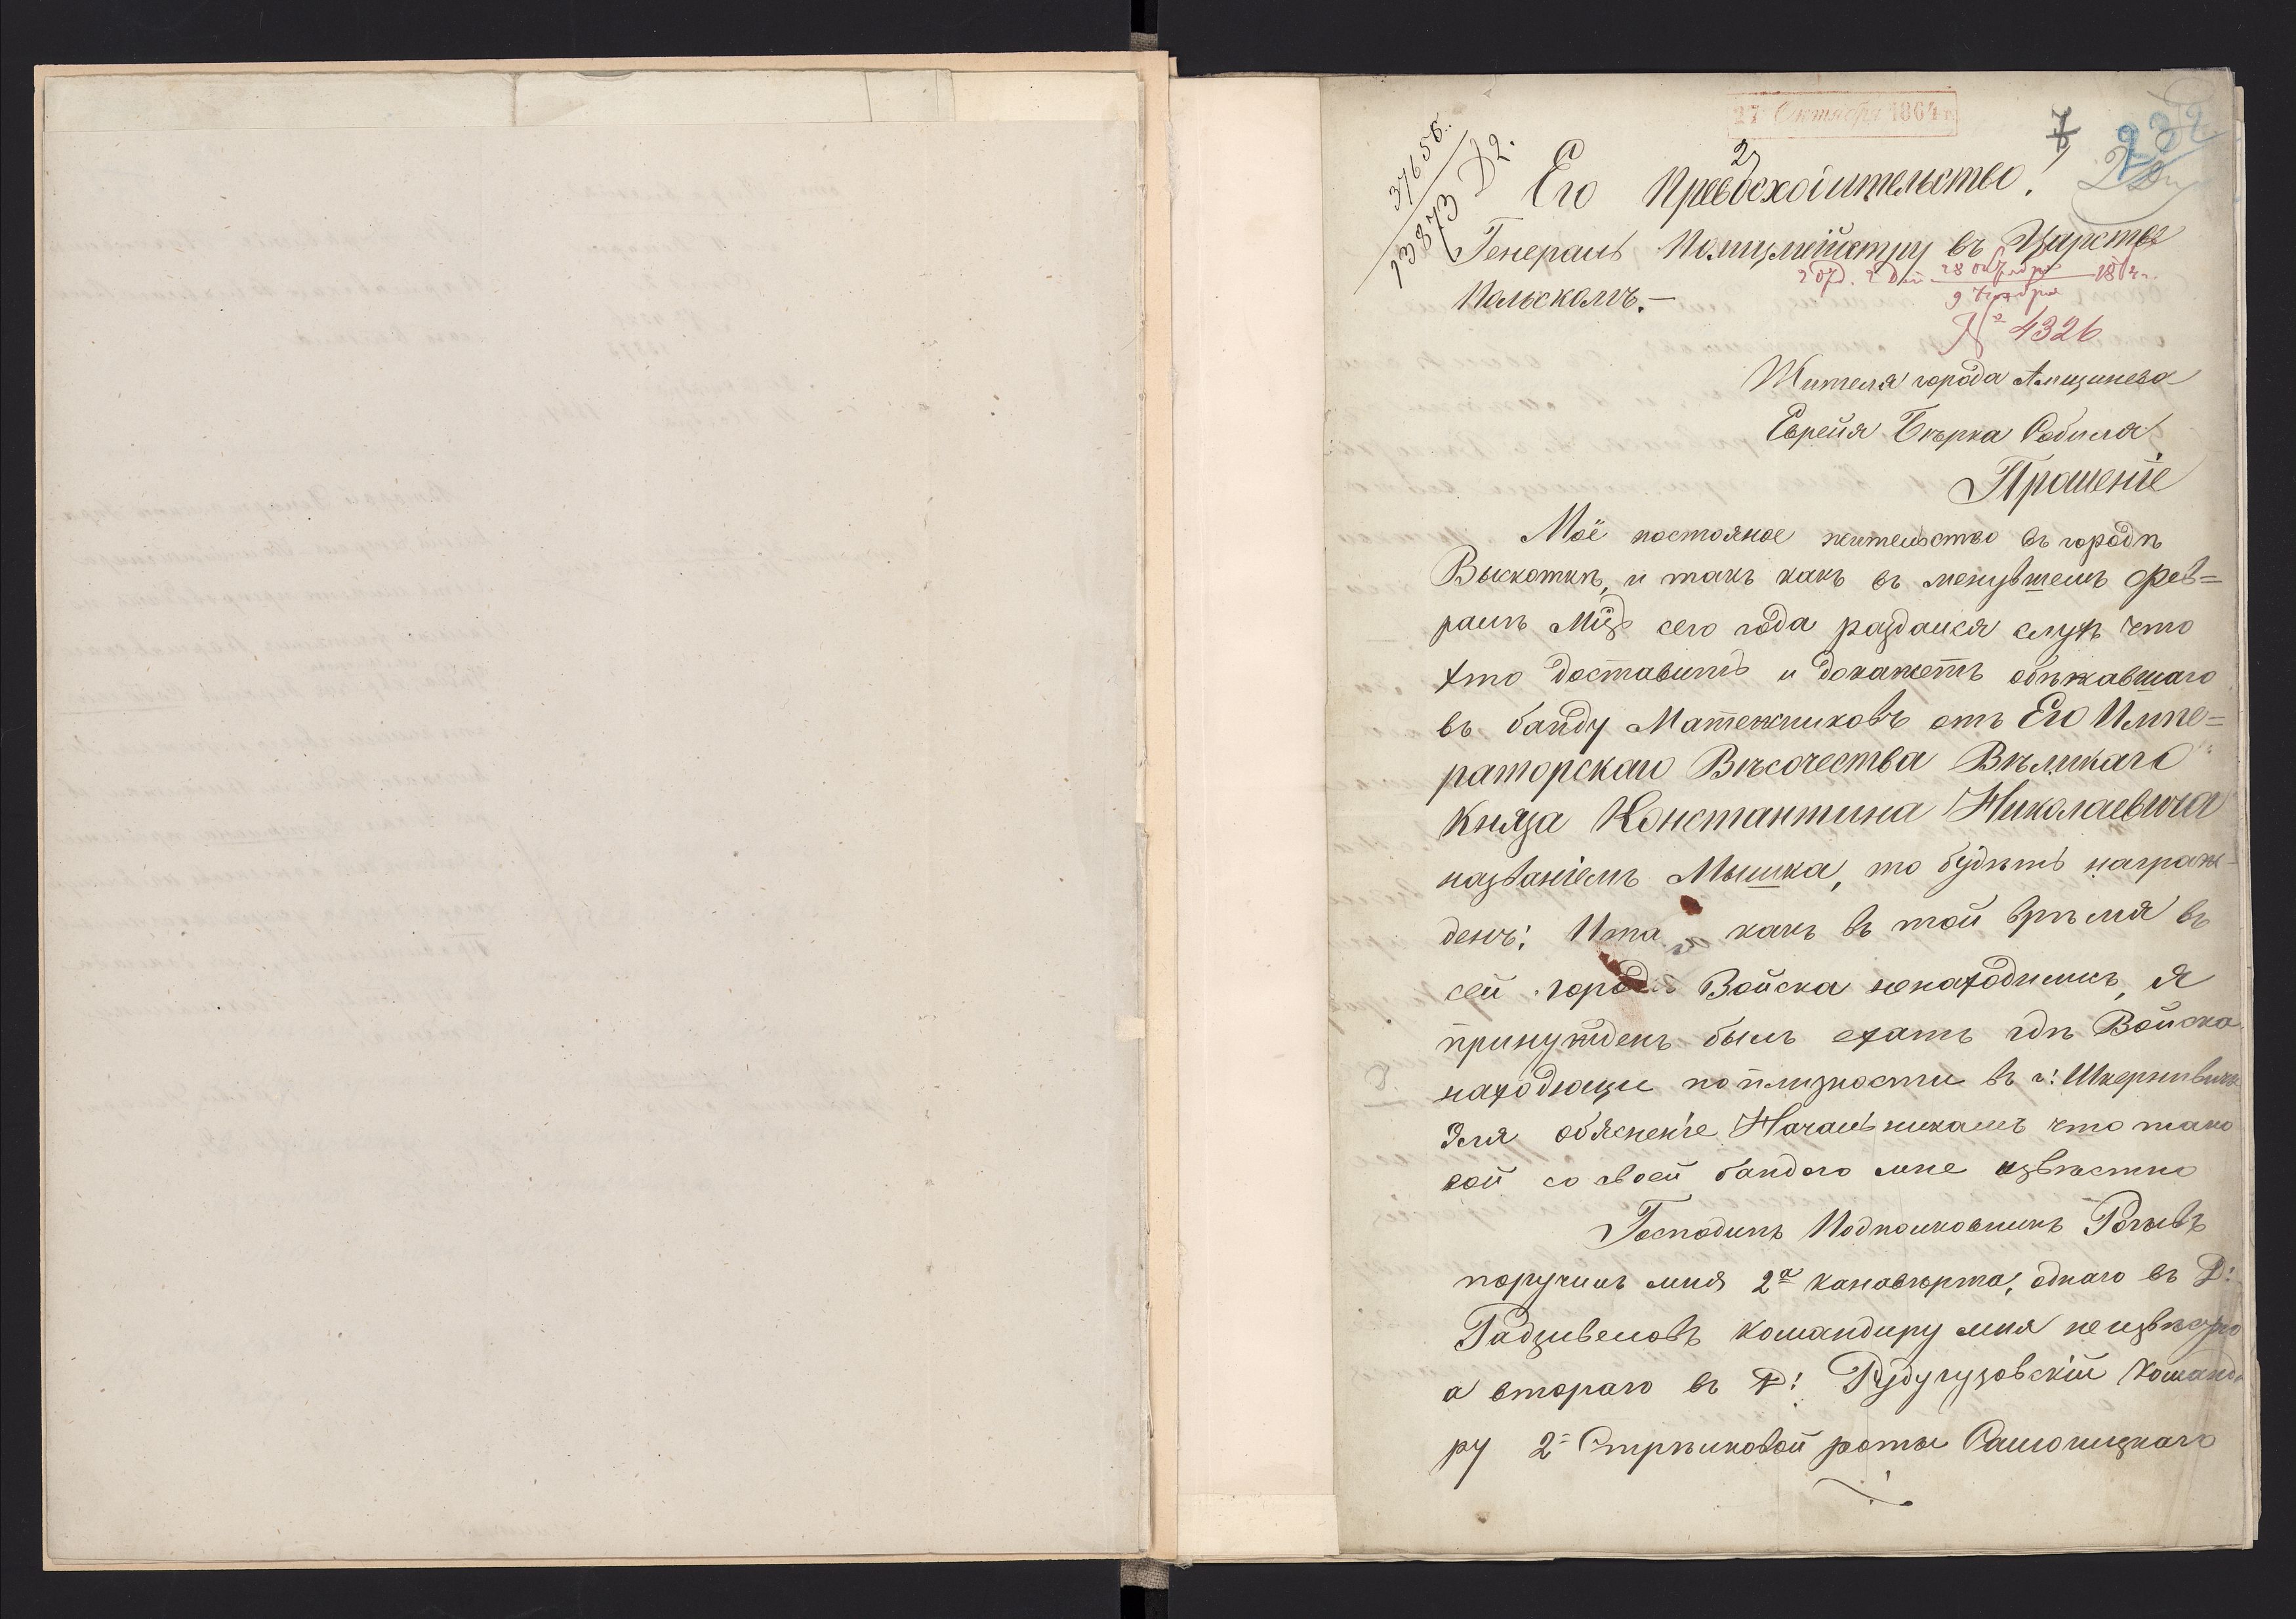 27 Октября 1864 г.
37658.
13873 Д2.
7
232
2
Его Превосходительство!
Генералъ Полицмейстру въ Царства
Польскомъ.—
2 отд. 28 октября
9 ноября 1864 г.
№ 4326
Жителя города Амшинева
Еврейя Бѣрка Собиля
Прошеніе
Моё постояное жительство въ городѣ
Выскоткѣ, и такъ какъ въ менувшемъ фев=
ралѣ Мцѣ сего года раздался слухъ что
хто доставитъ и докажетъ обѣжавшаго
въ банду Матежниковъ отъ Его Импе=
раторскаго Вѣсочества Вѣликаго
Княза Константина Николаевича
названіемъ Мышка, то будѣтъ награж-
денъ: Ита какъ въ той врѣмя въ
сей городѣ Войска ненаходилисъ, я
принужденъ былъ ехатъ гдѣ Войска
находющи поплизкости въ г: Шкерневичи
для обясненіе Начальникамъ что тако
вой со своей бандою мне извѣстно
Господинъ Подполковникъ
поручилъ мня 2а кановѣрта, однаго въ Д:
Радзивеловъ командиру мня неизвѣстно
а втораго въ Д: Рудугузовскій команди
ру 2= Стрѣлковой роты Самогицкаго